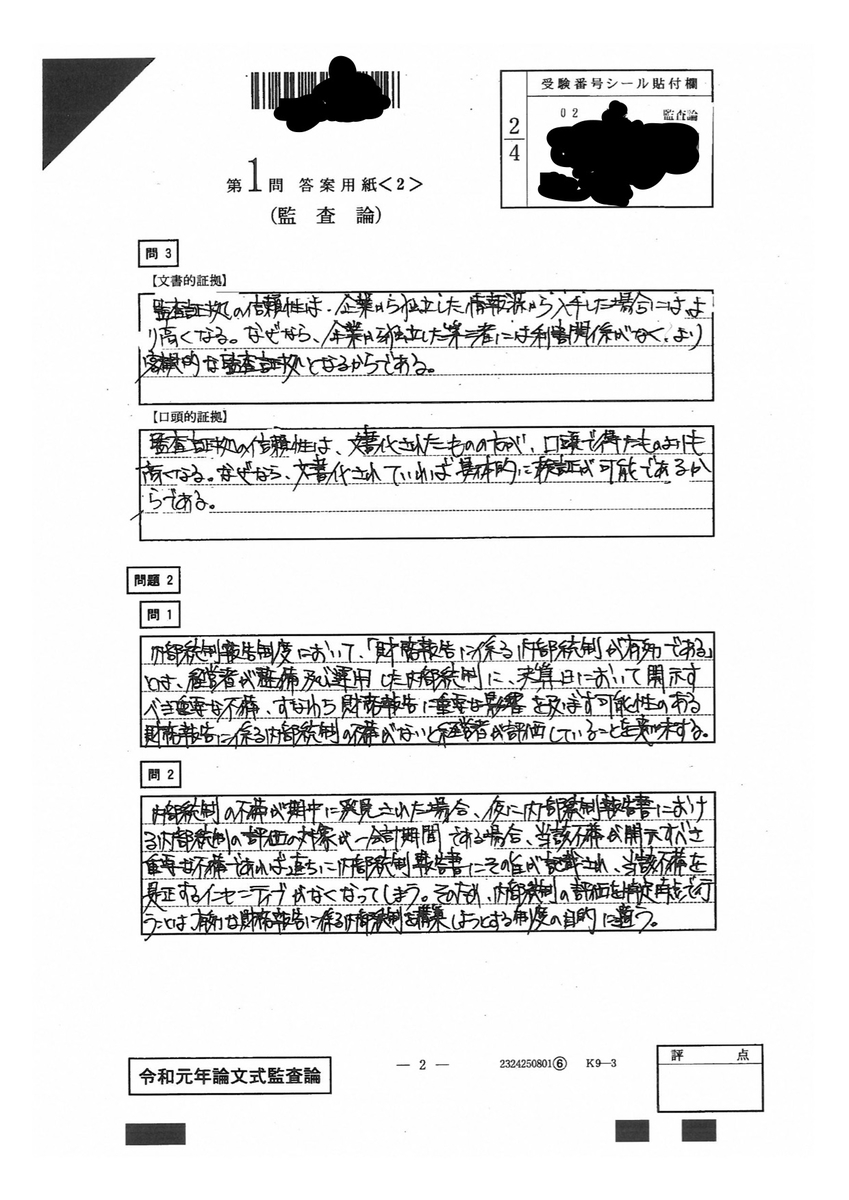 受験番号シール貼付欄
2/4
02
監査論
第1問 答案用紙<2>
(監査論)
問 3
【文書的証拠】
監査証拠の信頼性は、企業から独立した情報源から入手した場合にはよ
り高くなる。なぜなら、企業から独立した第三者には利害関係がなく、より
客観的な監査証拠となるからである。
【口頭的証拠】
監査証拠の信頼性は、文書化されたものの方が、口頭で得たものよりも
高くなる。なぜなら、文書化されていれば具体的に検証が可能であるか
らである。
問題 2
問 1
内部統制報告制度において、「財務報告に係る内部統制が有効である」
とは、経営者が整備及び運用した内部統制に、決算日において開示す
べき重要な不備、すなわち財務報告に重要な影響を及ぼす可能性のある
財務報告に係る内部統制の不備がないと経営者が評価していることを意味する。
問 2
内部統制の不備が期中に発見された場合、仮に内部統制報告書におけ
る内部統制の評価の対象が一会計期間である場合、当該不備が開示すべき
重要な不備であれば直ちに内部統制報告書にその旨が記載され、当該不備を
是正するインセンティブがなくなってしまう。そのため、内部統制の評価を特定時点で行
うことは有効な財務報告に係る内部統制を構築しようとする制度の目的に適う。
令和元年論文式監査論
― 2 ―
2324250801⑥ K9―3
評 点